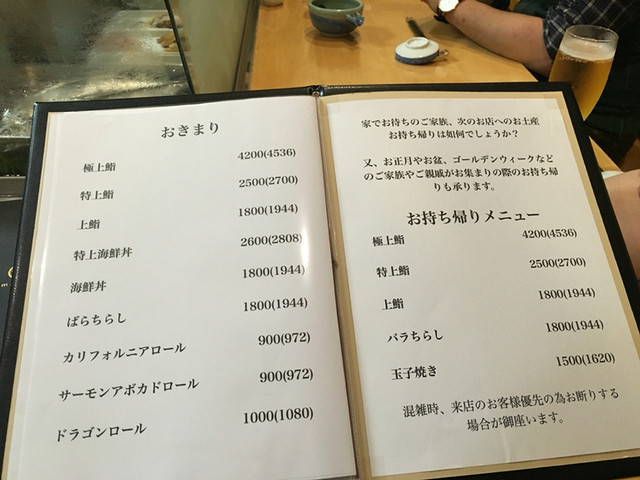 おきまり
極上鮨 4200(4536)
特上鮨 2500(2700)
上鮨 1800(1944)
特上海鮮丼 2600(2808)
海鮮丼 1800(1944)
ばらちらし 1800(1944)
カリフォルニアロール 900(972)
サーモンアボカドロール 900(972)
ドラゴンロール 1000(1080)
家でお待ちのご家族、次のお店へのお土産
お持ち帰りは如何でしょうか?
又、お正月やお盆、ゴールデンウィークなど
のご家族やご親戚がお集まりの際のお持ち帰
りも承ります。
お持ち帰りメニュー
極上鮨 4200(4536)
特上鮨 2500(2700)
上鮨 1800(1944)
バラちらし 1800(1944)
玉子焼き 1500(1620)
混雑時、来店のお客様優先の為お断りする
場合が御座います。